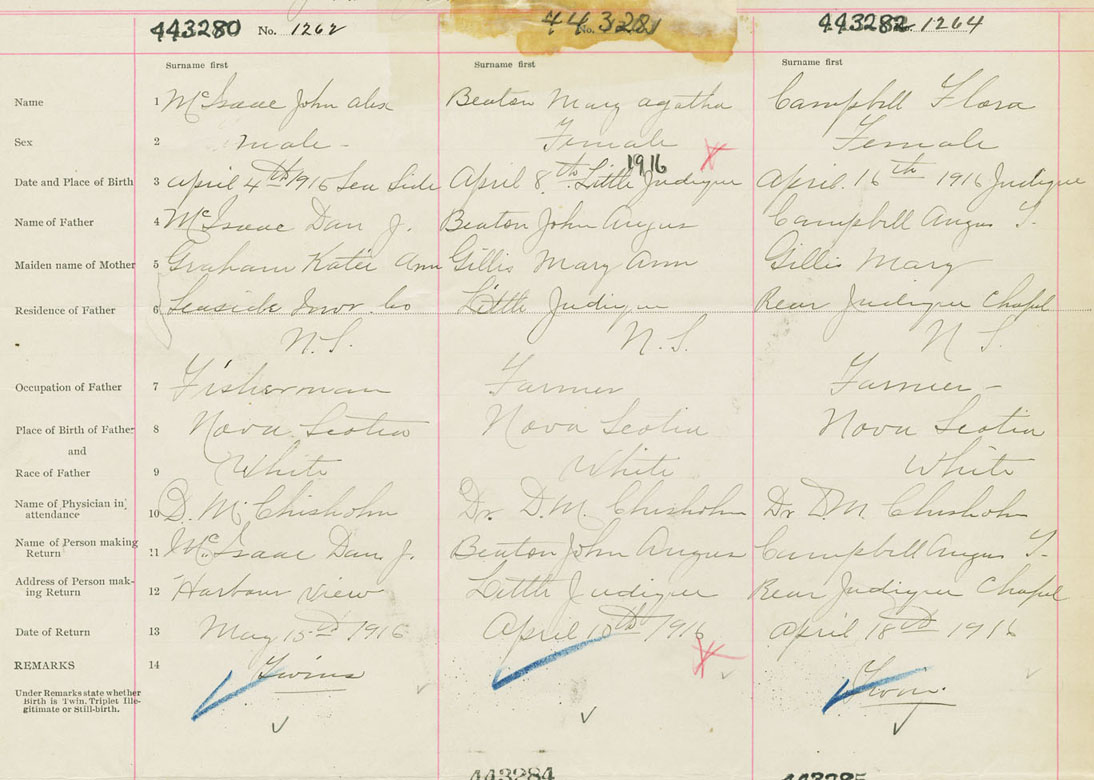 443280 No. 1262 443281 No. 443282 No. 1264
Surname first Surname first Surname first
Name 1 McIsaac John Alex Beaton Mary Agatha Campbell Flora
Sex 2 male - Female Female
1916
Date and Place of Birth 3 April 4th 1916 Sea Side April 8th Little Judique April 16th 1916 Judique
Name of Father 4 McIsaac Dan J. Beaton John Angus Campbell Angus T.
Maiden name of Mother 5 Graham Katie Ann Gillis Mary Ann Gillis Mary
Residence of Father 6 Seaside Inver. Co Little Judique Rear Judique Chapel
N.S. N.S. N S.
Occupation of Father 7 Fisherman Farmer Farmer -
Place of Birth of Father 8 Nova Scotia Nova Scotia Nova Scotia
and
Race of Father 9 White White White
Name of Physician in attendance 10 D. M. Chisholm Dr. D.M. Chisholm Dr D.M. Chisholm
Name of Person making Return 11 McIsaac Dan J. Beaton John Angus Campbell Angus T.
Address of Person making Return 12 Harbour View Little Judique Rear Judique Chapel
Date of Return 13 May 15th 1916 April 10th 1916 April 18th 1916
REMARKS 14 Twins Twin.
Under Remarks state whether
Birth is Twin. Triplet Ille-
gitimate or Still-birth.
443284 443285